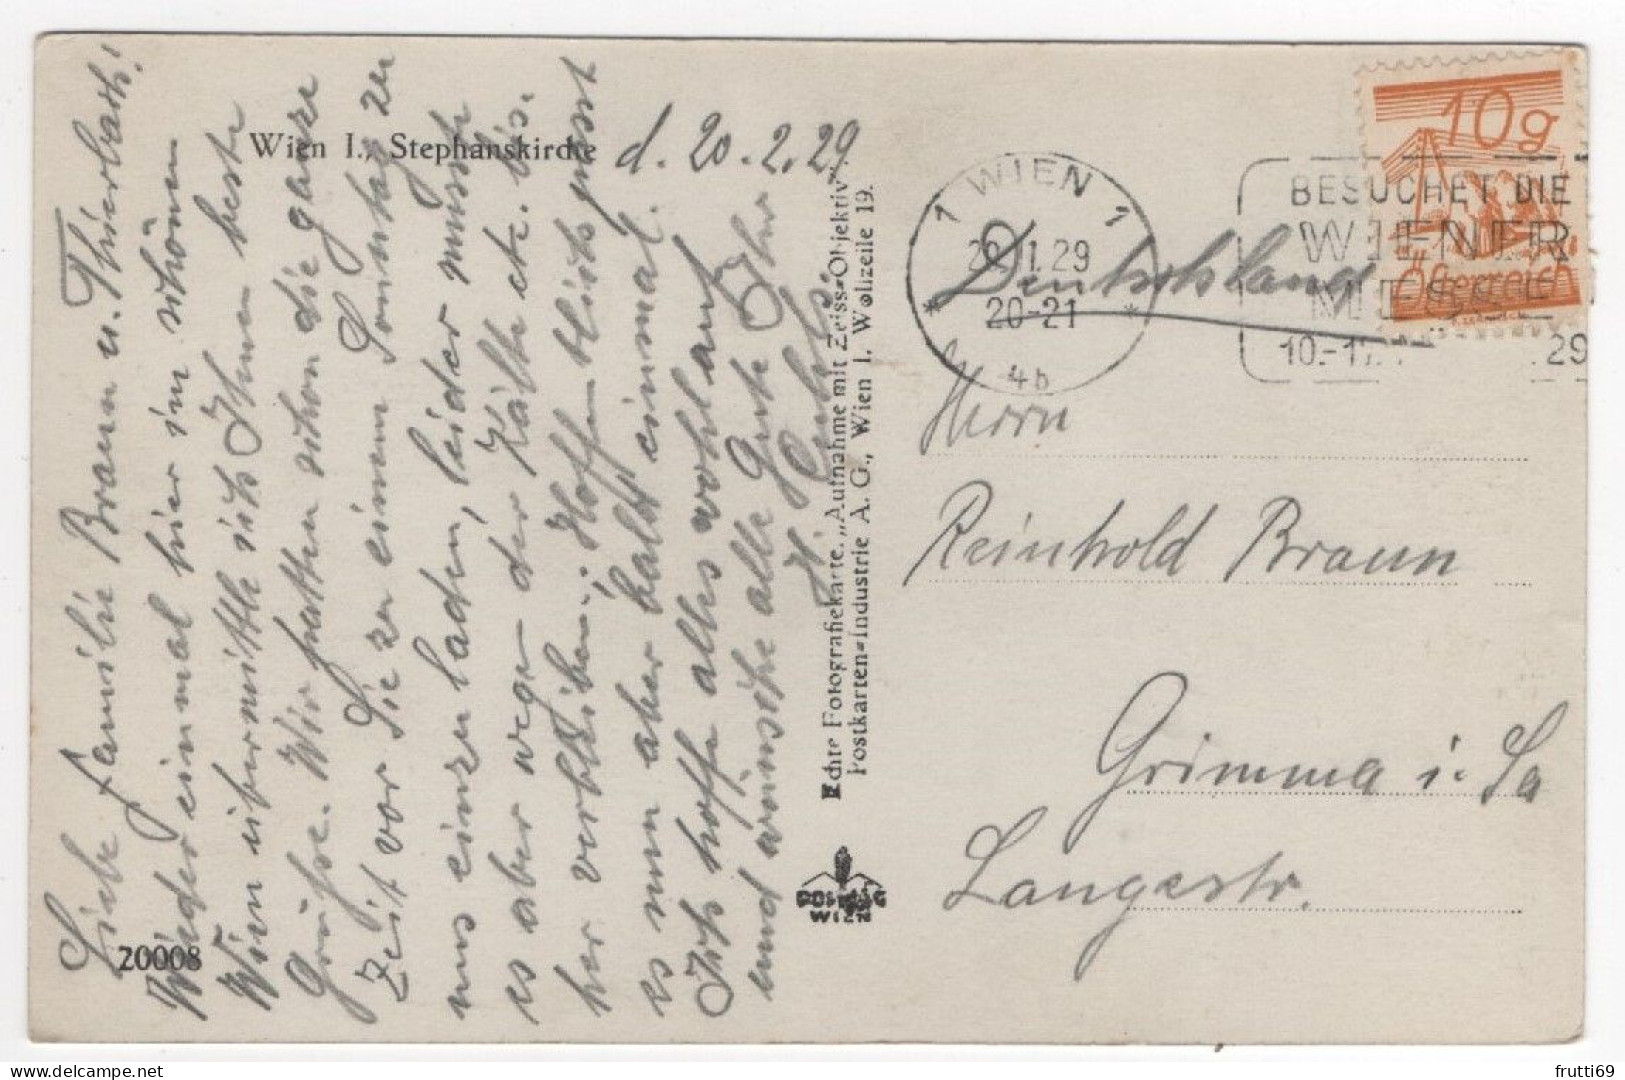 Wien I., Stephanskirche
d. 20.2.29
Liebe Familie Braun u. Thierbach!
Wieder einmal hier im schönen
Wien übermittle ich Ihnen beste
Grüsse. Wir hatten schon die ganze
Zeit vor Sie zu einem Sonntag zu
uns einzuladen, leider musste
es aber wegen der Kälte etc. bis-
her verbleiben. Hoffentlich passt
es nun aber bald einmal.
Ich hoffe alles wohlauf
und wünsche alle Gute Ihr
20008
Echte Fotografiekarte. „Aufnahme mit Zeiss-Objektiv"
Postkarten-Industrie A. G., Wien I, Wollzeile 19.
POSTIAG
WIEN
1 WIEN 1
20-21
4b
BESUCHET DIE
WIENER
MESSE
10.-17.
29
10g
Österreich
Deutschland
Herrn
Reinhold Braun
Grimma i. Sa
Langestr.
frutti69
www.delcampe.net